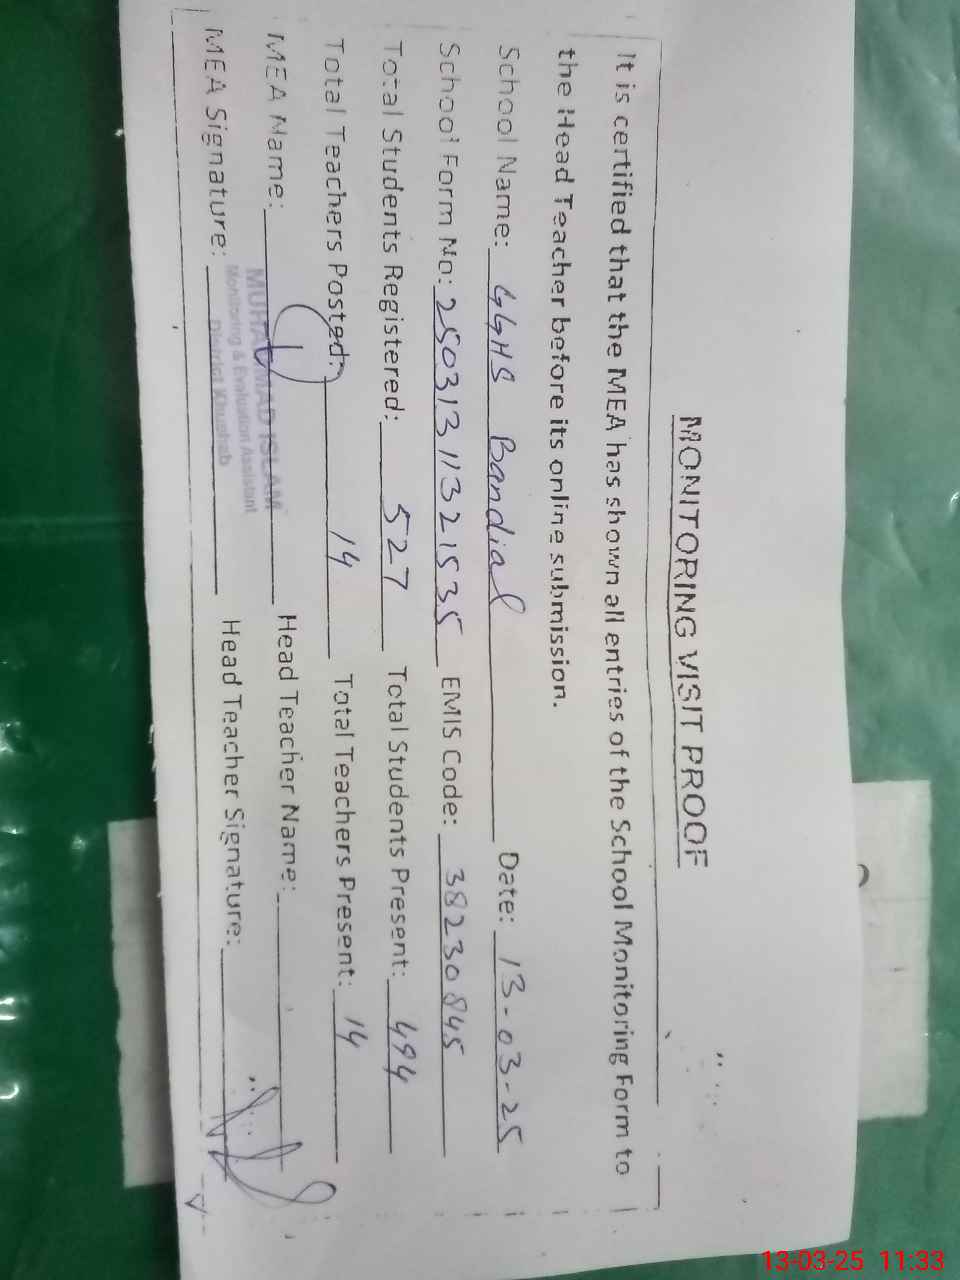 MONITORING VISIT PROOF
It is certified that the MEA has shown all entries of the School Monitoring Form to
the Head Teacher before its online submission.
School Name: GGHS Bandial Date: 13-03-25
School Form No: 25031311321535 EMIS Code: 38230845
Total Students Registered: 527 Total Students Present: 494
Total Teachers Posted: 14 Total Teachers Present: 14
MEA Name: Head Teacher Name:
MUHAMMAD ISLAM
Monitoring & Evaluation Assistant
District Khushab
MEA Signature: Head Teacher Signature:
13-03-25 11:33